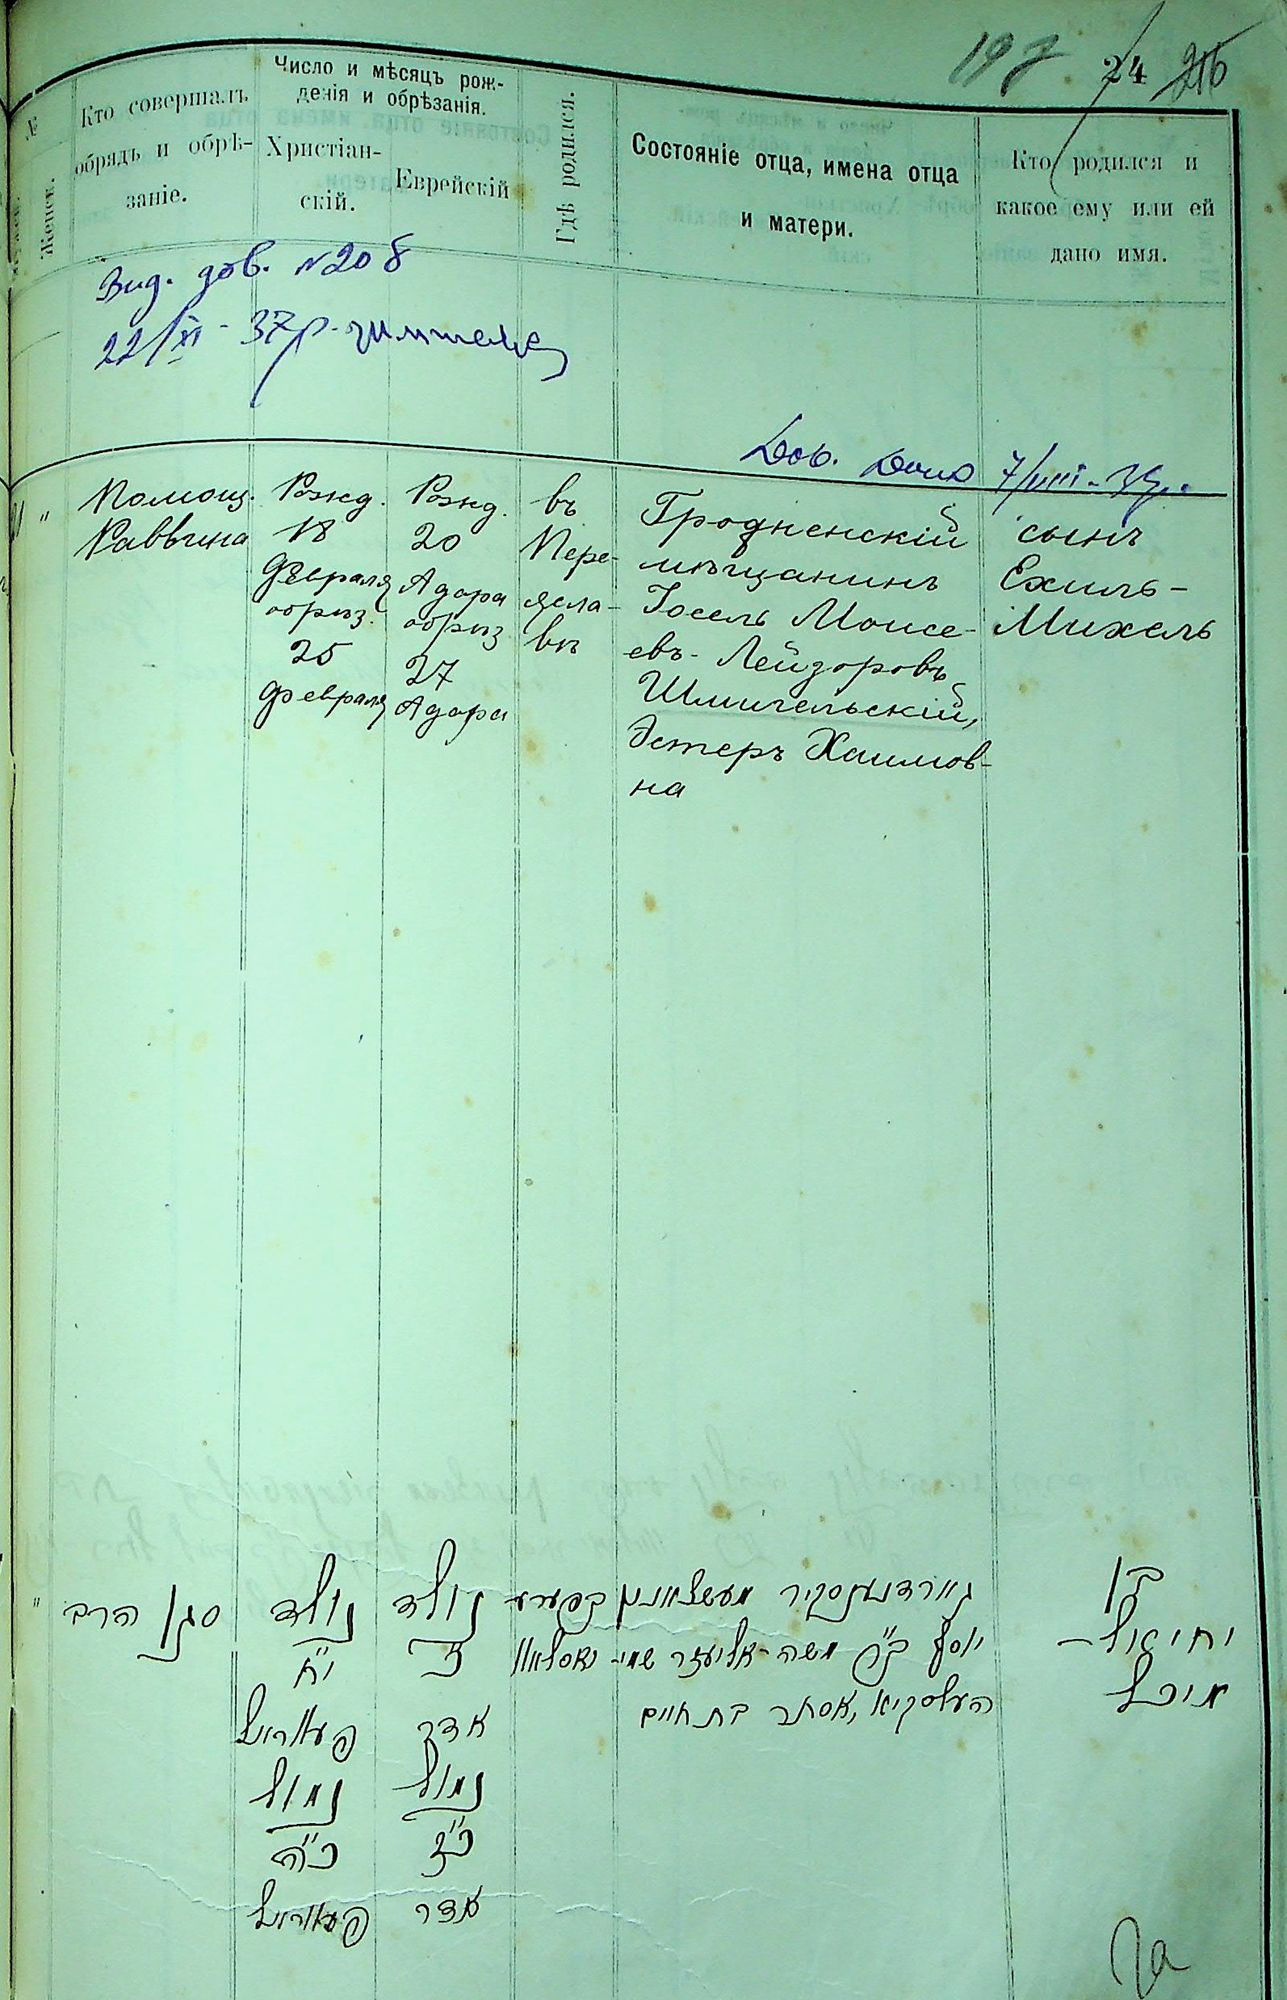 197 24 216
№
Женск.
Кто совершалъ
обрядъ и обрѣ-
заніе.
Число и мѣсяцъ рож-
денія и обрѣзанія.
Христіан-
скій.
Еврейскій
Гдѣ родился.
Состояніе отца, имена отца
и матери.
Кто родился и
какое ему или ей
дано имя.
Вид. дов. №208
22/XI - 37р.
Дов. 7/VIII-
Помощ.
Раввина
Рожд.
18
Февраля
обрѣз.
25
Февраля
Рожд.
20
Адара
обрѣз.
27
Адара
въ
Пере-
ясла-
вѣ
Гродненскій
мѣщанинъ
Іосель Моисе-
евъ-Лейзоровъ
Шмигельскій,
Эстеръ Хаимов-
на
сынъ
Ехиль-
Михель
בן
יחיאל-
מיכל
יוסף ב״ר משה-אליעזר שמי-
העלסקיא, אסתר בת חיים
נולד
כ
אדר
נמול
כ״ז
אדר
נולד
י״ח
פעווראל
נמול
כ״ה
פעווראל
סגן הרב